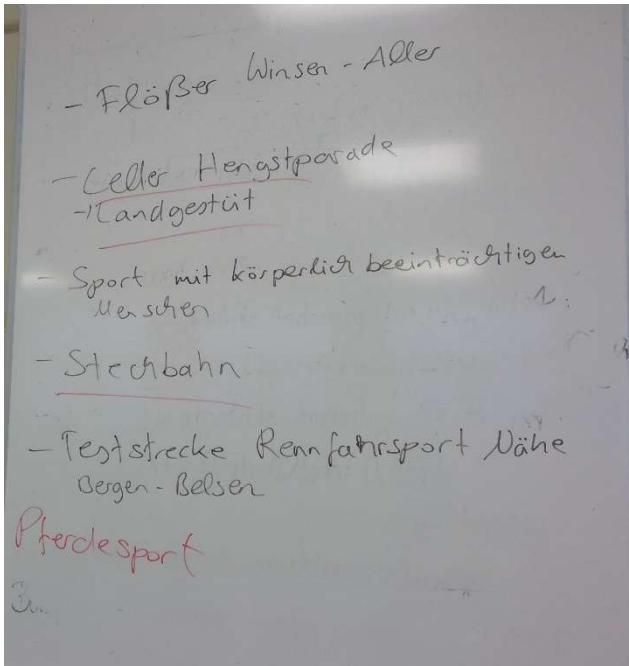 - Flößer Winsen - Aller
- Celler Hengstparade
→ Landgestüt
- Sport mit körperlich beeinträchtigen
Menschen
1.
- Stechbahn
- Teststrecke Rennfahrsport Nähe
Bergen-Belsen
Pferdesport